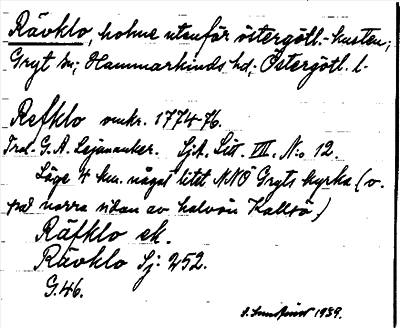 Rävklo, holme utanför östergötl.-kusten;
Gryt sn; Hammarkinds hd; Östergötl. l.
Refklo omkr. 1774-76.
G. A. Lejonanker. Sjk. Litt. VII. N:o 12.
Läge 4 km. något litet NNO Gryts kyrka (o.
på norra sidan av halvön Kallsö)
Räfklo ek.
Rävklo Sj: 252.
G.46.
1939.